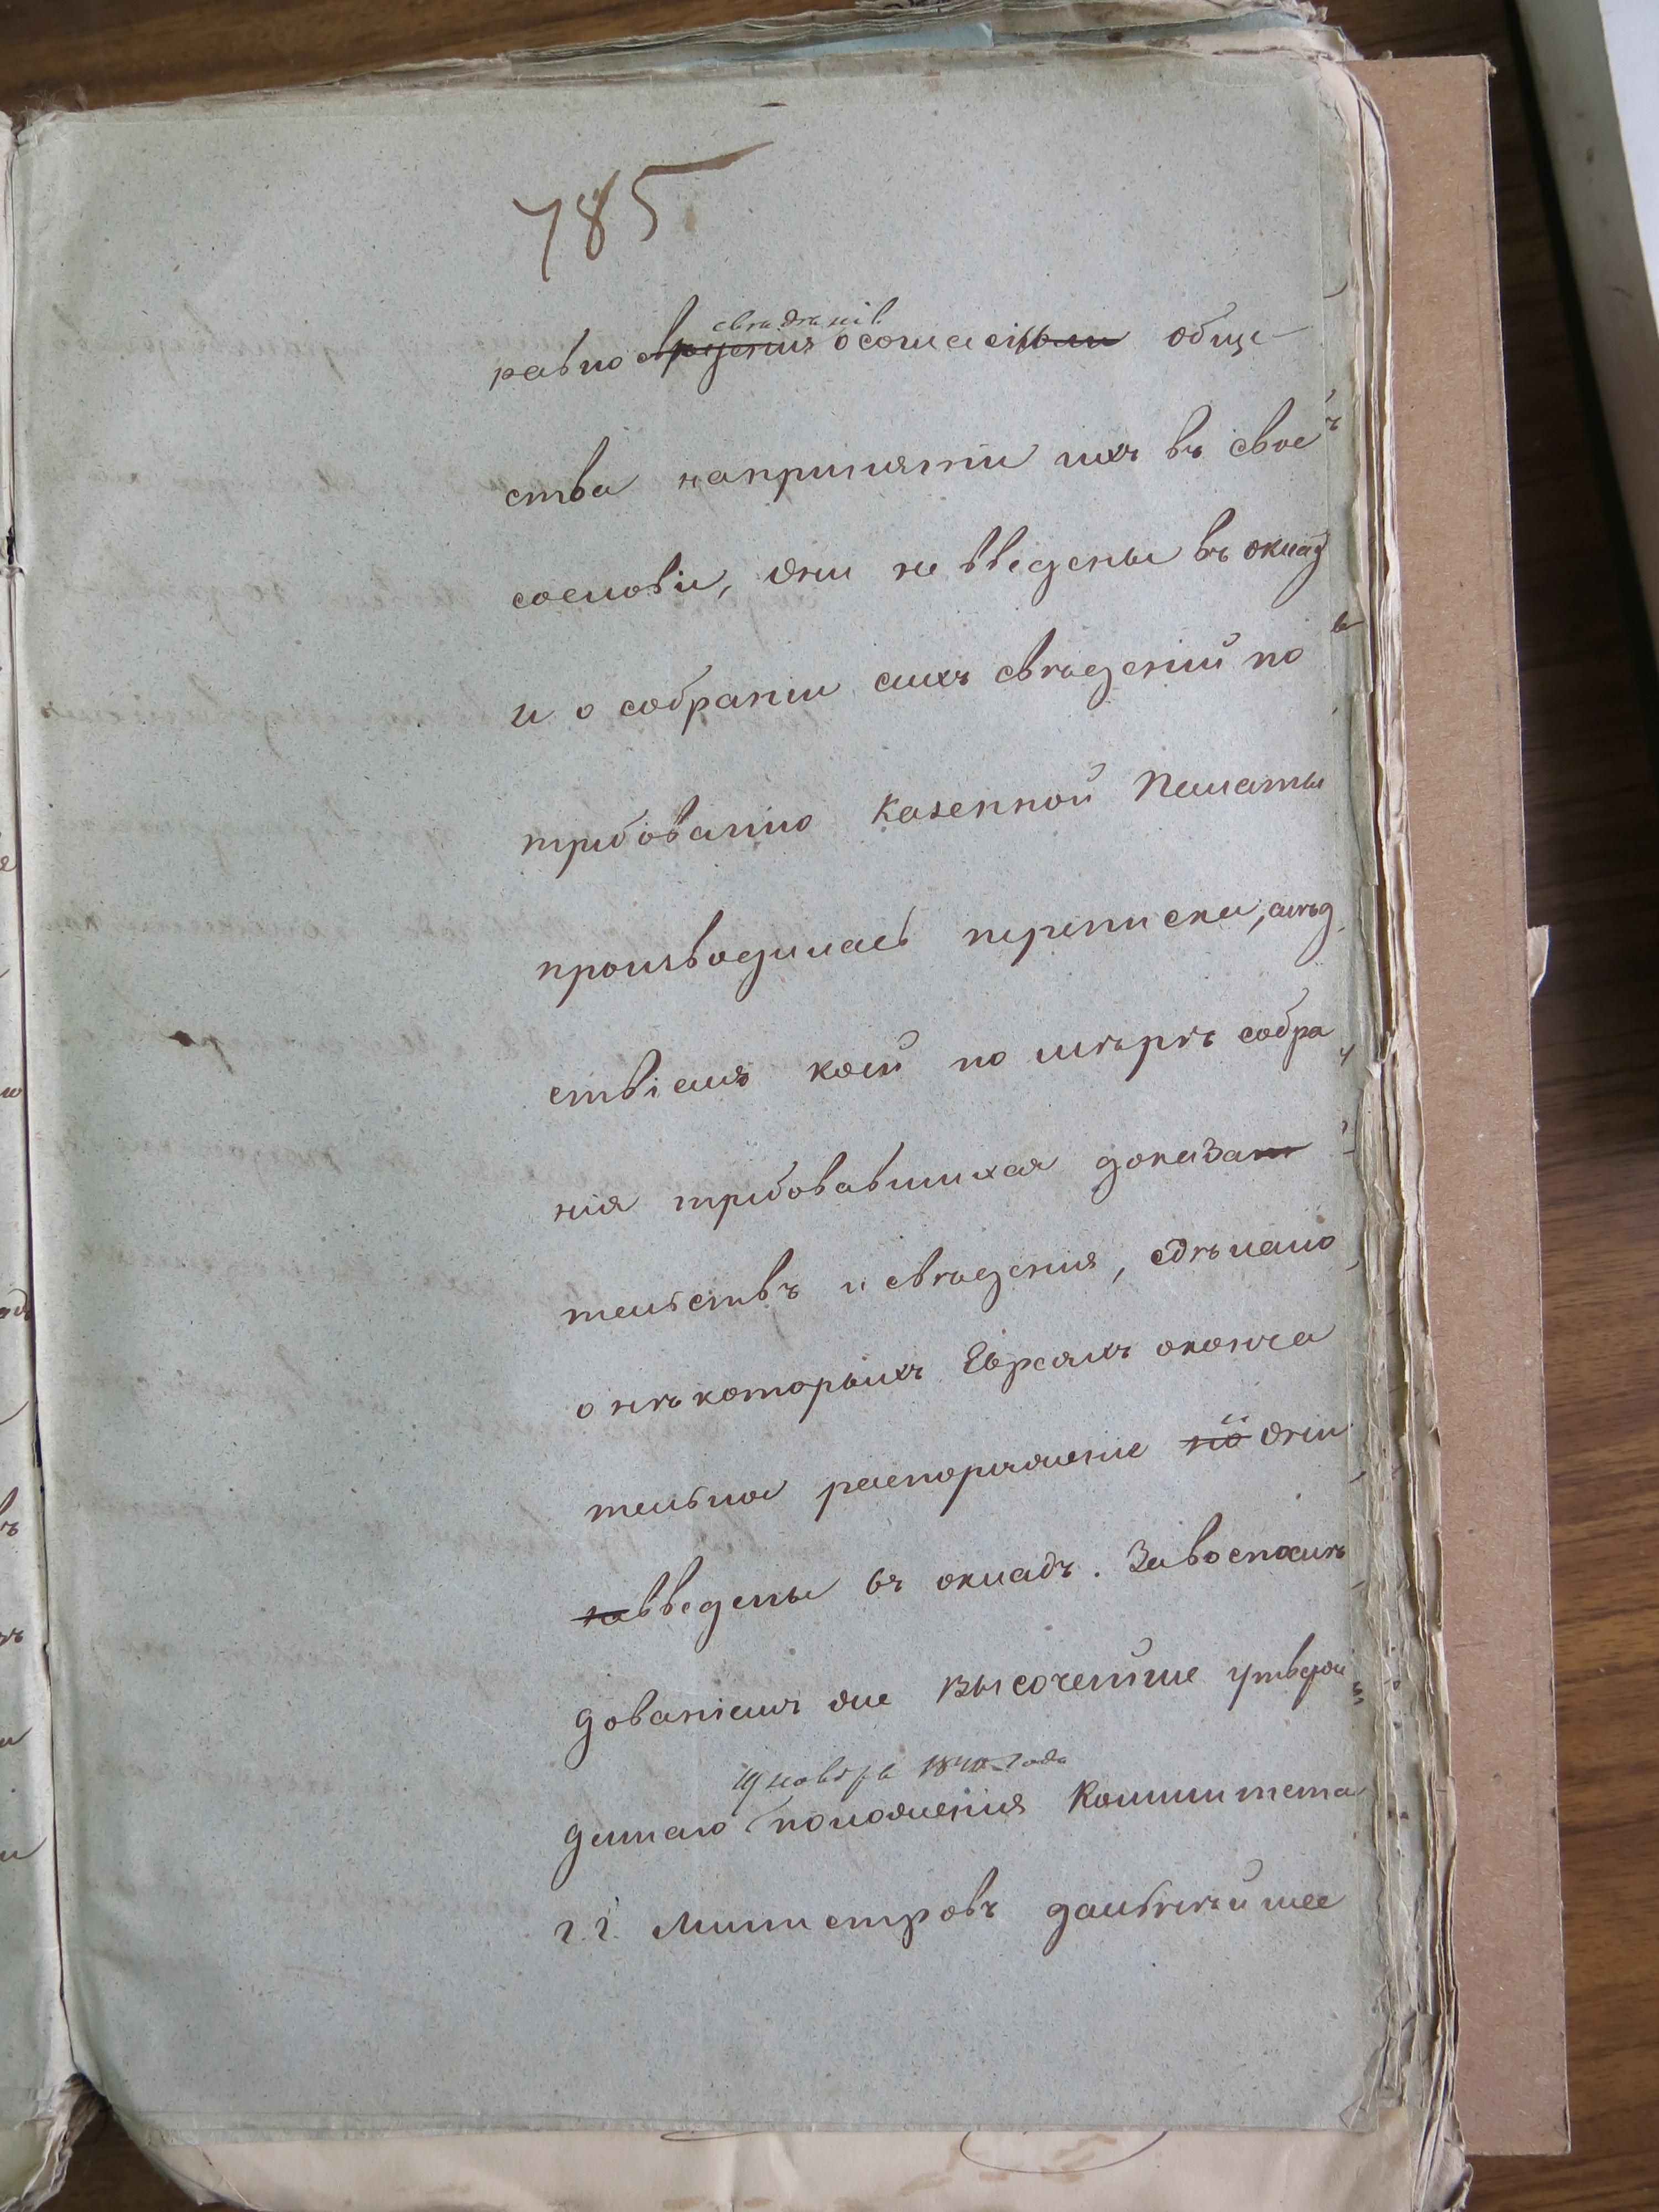 785
свѣдѣній
равно свѣденія о согласіи обще-
ства на принятіи ихъ въ свое
сословіе, они не введены въ окладъ
и о собраніи сихъ свѣденій по
требованію Казенной Палаты
производилась переписка, слѣд
ствіемъ коей по мѣрѣ собра
нія требовавшихся доказа
тельствъ и свѣденія, сдѣлано
о нѣкоторыхъ Евреяхъ оконча
тельное распоряженіе но они
не введены въ окладъ. За воспослѣ
дованіемъ же Высочайше утверж
19 ноября 1840 года
деннаго положенія Комитета
г.г. Министровъ дальнѣйшее